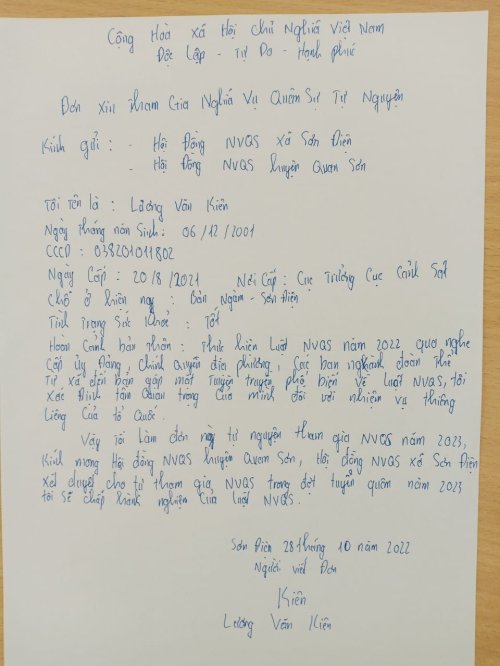 Cộng Hoà Xá Hội Chủ Nghĩa Việt Nam
Độc Lập - Tự Do - Hạnh phúc
Đơn xin tham Gia Nghĩa Vụ Quân Sự Tự Nguyện
Kính gửi : - Hội Đồng NVQS xã Sơn Điện
- Hội Đồng NVQS huyện Quan Sơn
Tôi Tên là : Lương Văn Kiên
Ngày tháng năm Sinh : 06 / 12 / 2001
CCCD : 038201011802
Ngày Cấp : 20/8/2021 Nơi Cấp : Cục Trưởng Cục Cảnh Sát
Chỗ ở hiện nay : Bản Ngàm - Sơn Điện
Tình Trạng Sức Khoẻ : Tốt
Hoàn Cảnh bản Thân : Thực hiện Luật NVQS năm 2022 qua nghe
Cấp ủy Đảng, Chính quyền địa phương, Các ban nghành đoàn thể
Từ xã đến bản gặp mặt Tuyên truyền phổ biến về luật NVQS, tôi
Xác Định tầm Quan trọng Của mình đối với nhiệm vụ thiêng
Liêng Của tổ Quốc.
Vậy Tôi Làm đơn này tự nguyện tham gia NVQS năm 2023,
Kính mong Hội đồng NVQS huyện Quan Sơn, Hội đồng NVQS xã Sơn Điện
xét duyệt cho tự tham gia NVQS trong đợt tuyển quân năm 2023
tôi Sẽ chấp hành nghiêm Của luật NVQS.
Sơn Điện 28 tháng 10 năm 2022
Người viết Đơn
Kiên
Lương Văn Kiên